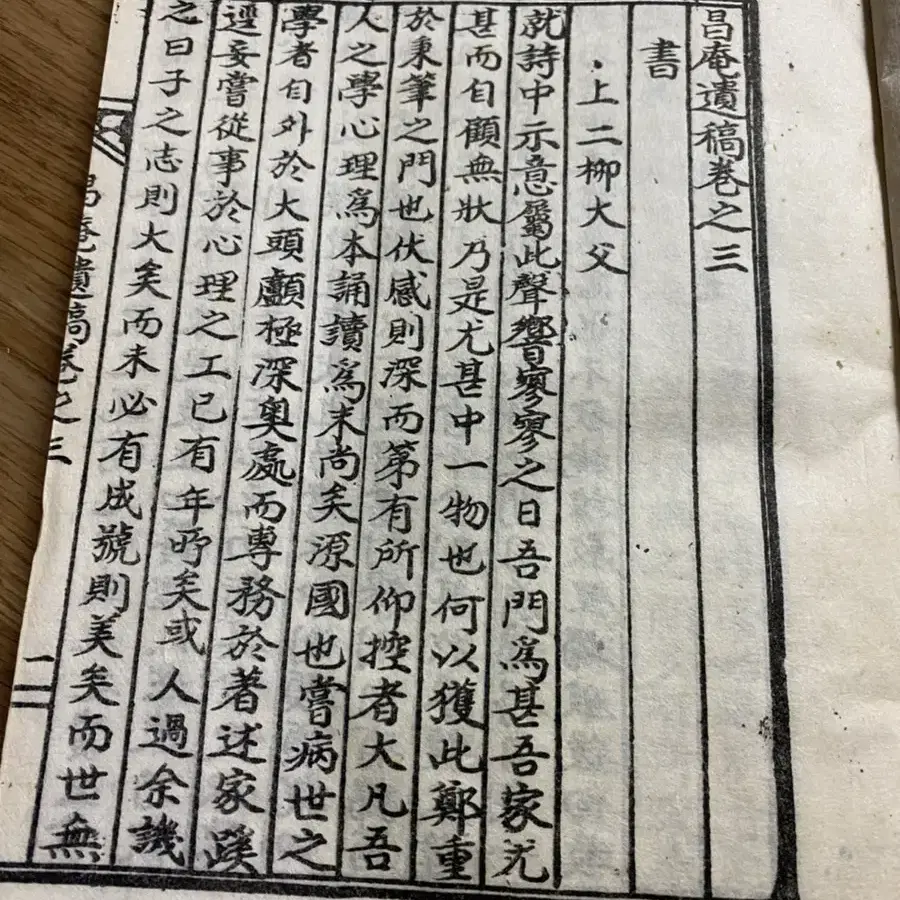 昌庵遺稿卷之三
書
上二柳大父
就詩中示意屬此聲響寥寥之日吾門爲甚吾家尤
甚而自顧無狀乃是尤甚中一物也何以獲此鄭重
於秉筆之門也伏感則深而第有所仰控者大凡吾
人之學心理爲本誦讀爲末尚矣源國也嘗病世之
學者自外於大頭顱極深奧處而專務於著述家蹊
逕妄嘗從事於心理之工已有年呼矣或人過余譏
之曰子之志則大矣而未必有成號則美矣而世無
昌庵遺稿卷之三
一